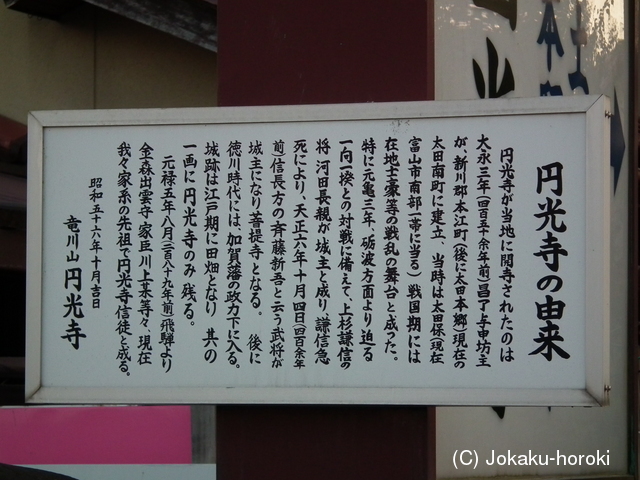 円光寺の由来
円光寺が当地に開寺されたのは
大永三年(四百五十余年前)昌了与申坊主
が、新川郡本江町(後に太田本郷)現在の
太田南町に建立、当時は太田保(現在
富山市南部一帯に当る)戦国期には
在地土豪等の戦乱の舞台と成った。
特に元亀三年、砺波方面より迫る
一向一揆との対戦に備えて、上杉謙信の
将河田長親が城主と成り謙信急
死により、天正六年十月四日(四百余年
前)信長方の斉藤新吾と云う武将が
城主になり菩提寺となる。 後に
徳川時代には、加賀藩の政力下に入る。
城跡は江戸期に田畑となり 其の
一画に円光寺のみ残る。
元禄五年八月(二百八十九年前)飛騨より
金森出雲守 家臣川上某等々、現在
我々家系の先祖で円光寺信徒と成る。
昭和五十六年十月吉日
竜川山 円光寺
(C) Jokaku-horoki